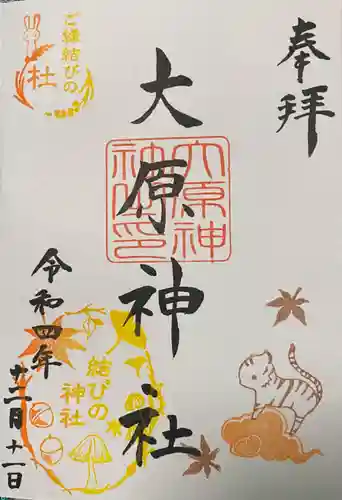 奉拝
大原神社
大原神社印
令和四年
十二月十一日
ご縁結びの
杜
結びの
神社